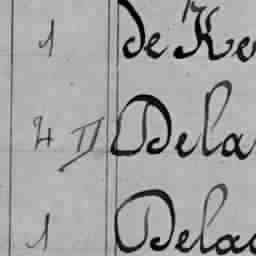 1 de Ke
4 II Dela
1 Delac